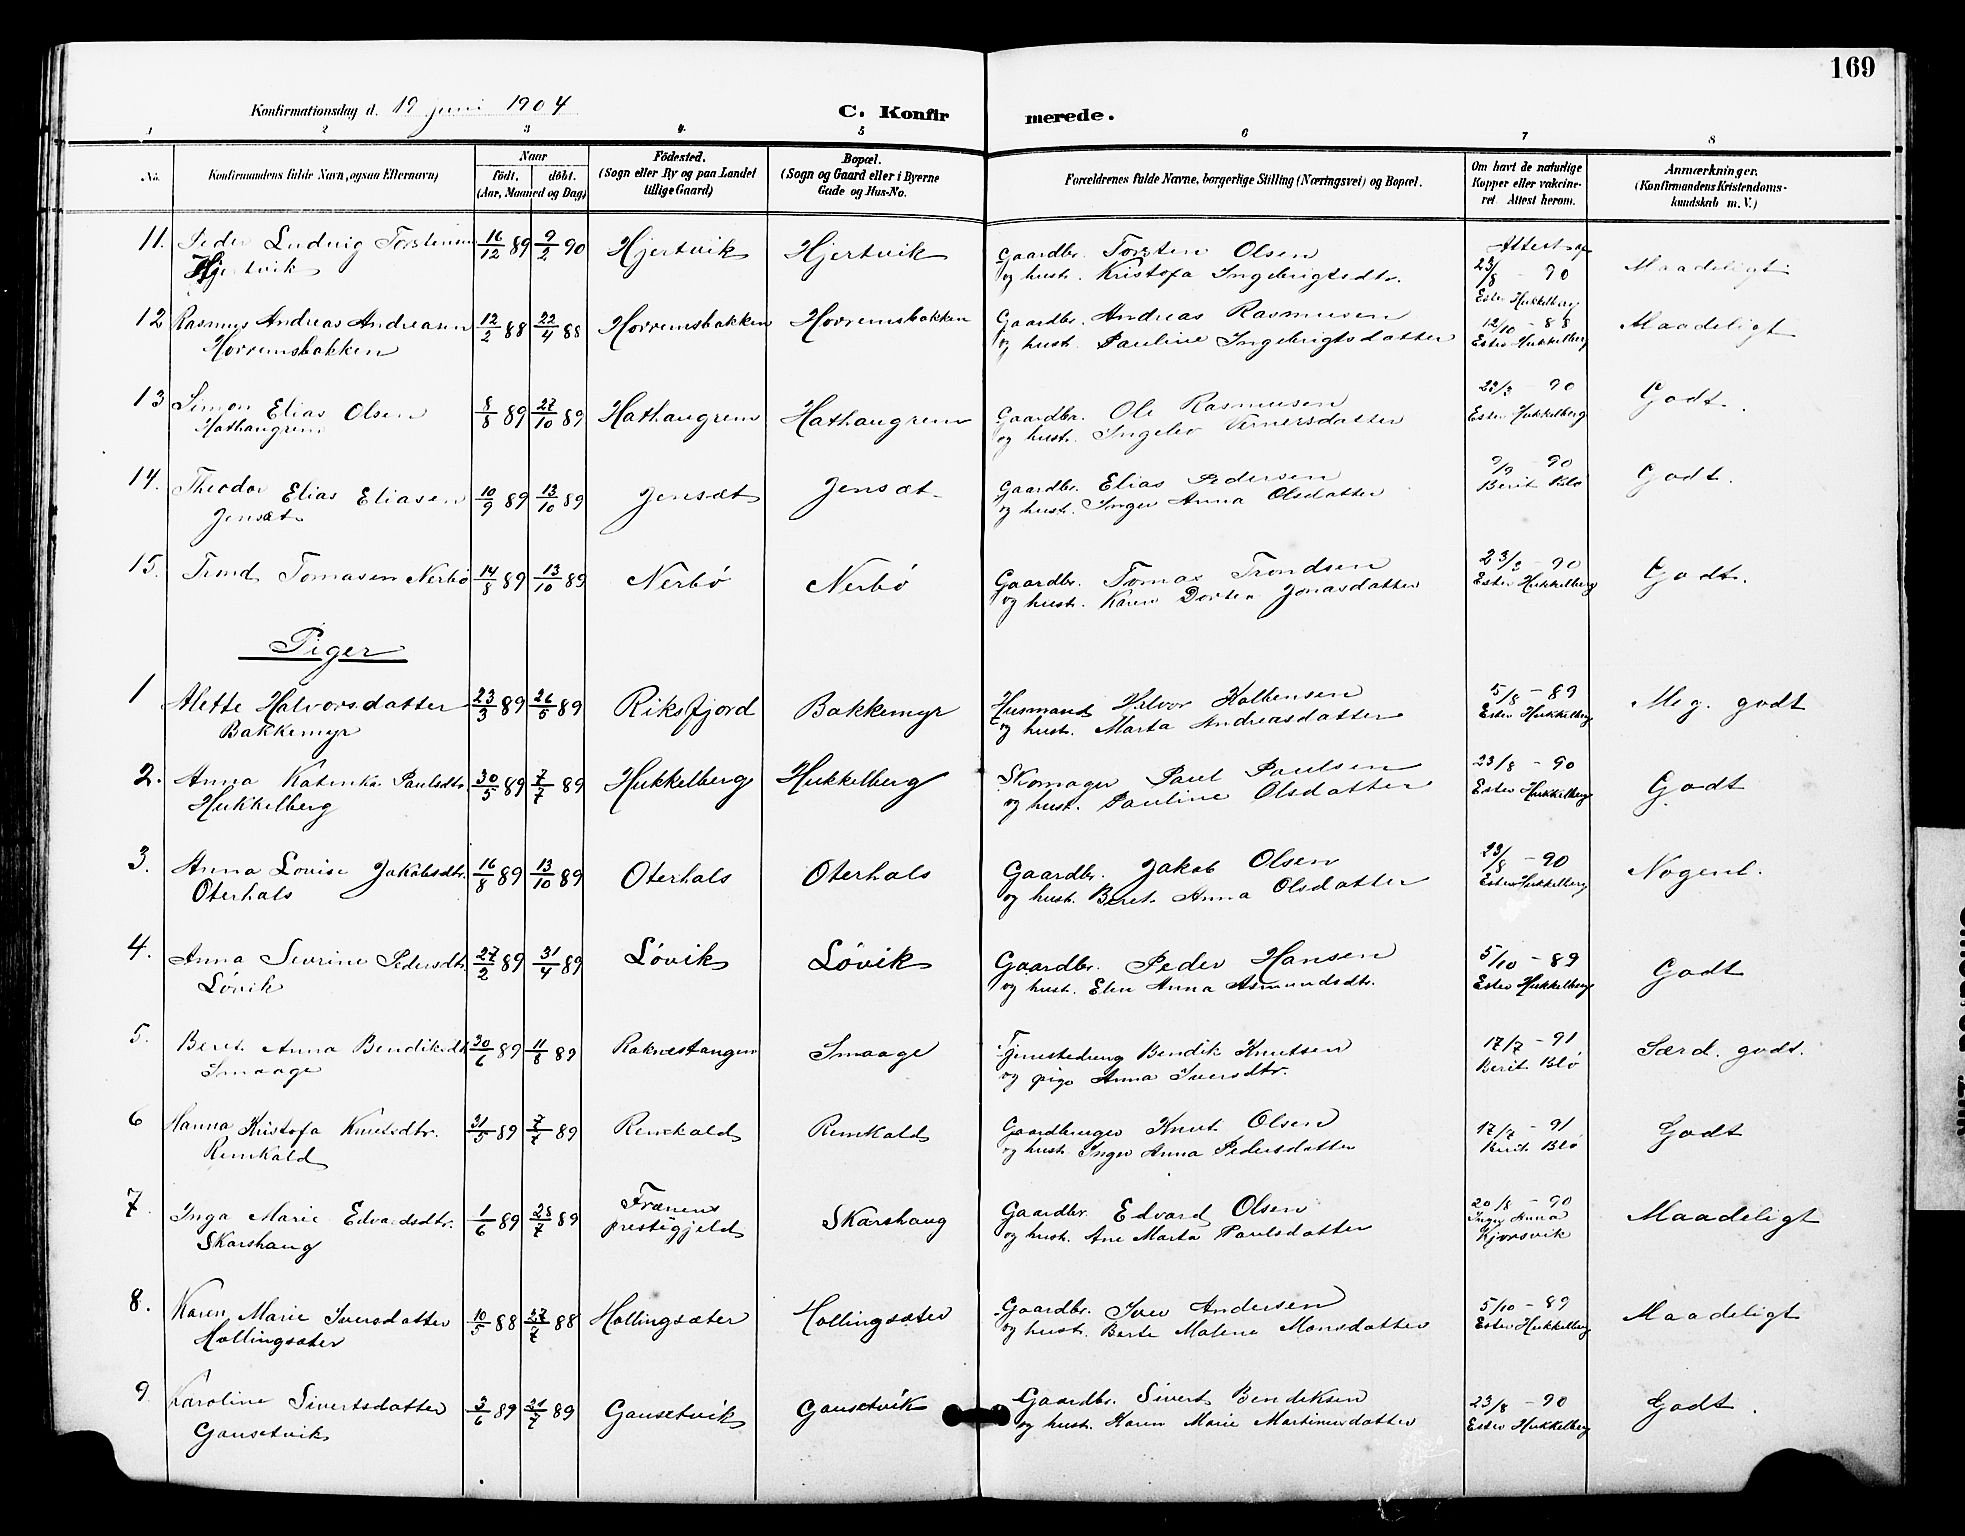 169
Konfirmationsdag d. 19 juni 1904
C. Konfirmerede.
1 2 3 4. 5 6 7 8
No. Konfirmandens fulde Navn, ogsaa Efternavn) Naar født. døbt. (Aar, Maaned og Dag) Fødested. (Sogn eller By og paa Landet tillige Gaard) Bopæl. (Sogn og Gaard eller i Byerne Gade og Hus-No. Forældrenes fulde Navne, borgerlige Stilling (Næringsvei) og Bopæl. Om havt de naturlige Kopper eller vakcineret. Attest herom. Anmærkninger. (Konfirmandens Kristendomskundskab m. V.)
11. Peder Ludvig Torstensen 16/12 89 9/2 90 Hjertvik Hjertvik Gaardbr. Torsten Olsen Attest af 23/8 - 90 Maadeligt
Hjertvik og hustr. Kristofa Ingebrigtsdtr. Ester Hukkelberg
12 Rasmus Andreas Andreasen 12/2 88 22/4 88 Horremsbakken Horremsbakken Gaardbr. Andreas Rasmusen 12/10 - 88 Maadeligt
Horremsbakken og hustr. Pauline Ingebrigtsdatter Ester Hukkelberg
13 Simon Elias Olsen 8/8 89 27/10 89 Hathaugrem Hathaugrem Gaardbr. Ole Rasmusen 23/3 - 90 Godt.
Hathaugrem og hustr. Ingebor Vernersdatter Ester Hukkelberg
14. Theodor Elias Eliasen 10/9 89 13/10 89 Jensæt Jensæt Gaardbr. Elias Pedersen 9/9 - 90 Godt.
Jensæt og hustr. Inger Anna Olsdatter Berit Blø
15. Trond Tomasen Nerbø 14/8 89 13/10 89 Nerbø Nerbø Gaardbr. Tomas Trondsen 23/3 - 90 Godt.
og hustr. Karen Dortea Jonasdatter Ester Hukkelberg
Piger
1 Alette Halvorsdatter 23/3 89 26/5 89 Riksfjord Bakkemyr Husmand Halvor Kolbensen 5/8 - 89 Meg. godt
Bakkemyr og hustr. Marta Andreasdatter Ester Hukkelberg
2. Anna Katinka Paulsdtr. 30/5 89 7/7 89 Hukkelberg Hukkelberg Skomager Paul Paulsen 23/8 - 90 Godt
Hukkelberg og hust. Pauline Olsdatter Ester Hukkelberg
3. Anna Lovise Jakobsdtr. 16/8 89 13/10 89 Oterhals Oterhals Gaardbr. Jakob Olsen 23/8 - 90 Nogenl.
Oterhals og hust. Beret Anna Olsdatter Ester Hukkelberg
4. Anna Sevrine Pedersdtr. 27/2 89 31/4 89 Løvik Løvik Gaardbr. Peder Hansen 5/10 - 89 Godt
Løvik og hust. Elen Anna Asmundsdtr. Ester Hukkelberg
5. Beret Anna Bendiksdt. 30/6 89 11/8 89 Raknestangen Smaage Tjenestedreng Bendik Knutsen 17/7 - 91 Særd. godt.
Smaage og pige Anna Iversdtr. Berit Blø
6 Hanna Kristofa Knutsdtr. 31/5 89 7/7 89 Remkald Remkald Gaardbruger Knut Olsen 17/7 - 91 Godt
Remkald og hust. Inger Anna Pedersdatter Berit Blø
7. Inga Marie Edvardsdtr. 1/6 89 28/7 89 Frænens prestegjeld Skarshaug Gaardbr. Edvard Olsen 20/8 - 90 Maadeligt
Skarshaug og hust. Ane Marta Paulsdatter Inger Anna Kjørsvik
8. Karen Marie Iversdatter 10/5 88 27/7 88 Hollingsæter Hollingsæter Gaardbr. Iver Andersen 5/10 - 89 Maadeligt
Hollingsæter og hustr. Berte Malene Monsdatter Ester Hukkelberg
9 Karoline Sivertsdatter 3/6 89 21/7 89 Gausetvik Gausetvik Gaardbr. Sivert Bendiksen 23/8 - 90 Godt.
Gausetvik og hust. Karen Marie Martinusdatter Ester Hukkelberg